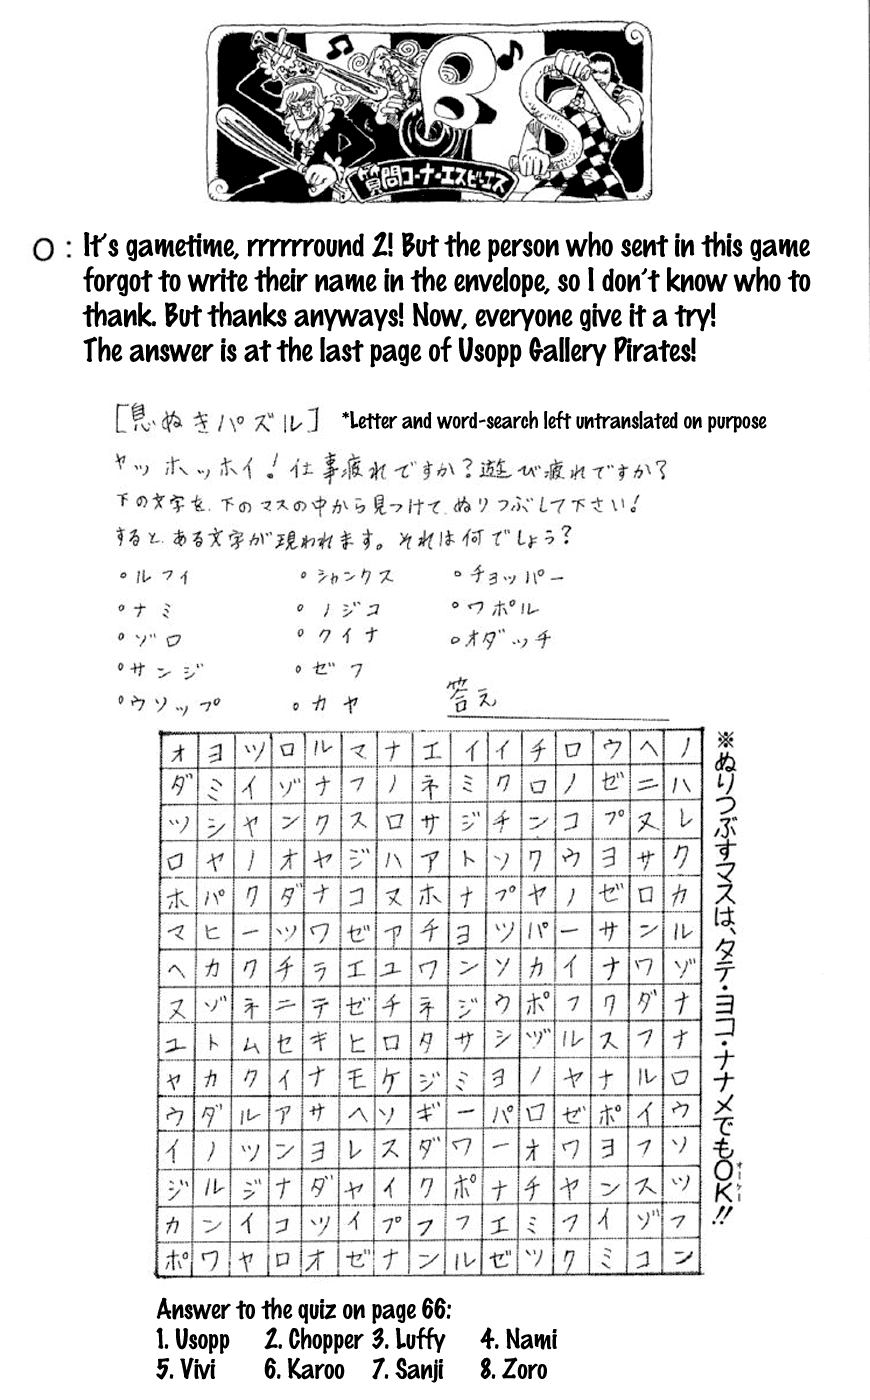 SBS
質問コーナー・エスビーエス
O : It's gametime, rrrrrround 2! But the person who sent in this game
forgot to write their name in the envelope, so I don't know who to
thank. But thanks anyways! Now, everyone give it a try!
The answer is at the last page of Usopp Gallery Pirates!
[息ぬきパズル] *Letter and word-search left untranslated on purpose
ヤッホッホイ!仕事疲れですか?遊び疲れですか?
下の文字を、下のマスの中から見つけて、ぬりつぶして下さい!
すると、ある文字が現われます。それは何でしょう?
°ルフイ °シャンクス °チョッパー
°ナミ °ノジコ °ワポル
°ゾロ °クイナ °オダッチ
°サンジ °ゼフ
°ウソップ °カヤ 答え
オヨツロルマナエイイチロウヘノ
ダミイゾナフノネミクロノゼニハ
ツシヤンクスロサジチンコプヌレ
ロヤノオヤジハアトソワウヨサク
ホパクダナコヌホナプヤノゼロカ
マヒーツワゼアチヨツパーサンル
ヘカクチラエユワンソカイナワゾ
ヌゾネニテゼチネジウポフクダナ
ユトムセキヒロタサシヅルスフナ
ヤカクイナモケジミヨノヤナルロ
ウダルアサヘソギーパロゼポイウ
イノツンヨレスダワーオワヨフソ
ジルジナダヤイクポナチヤンスツ
カンイコツイプフフエミフイゾフ
ポワヤロオゼナンルゼツクミコン
※ぬりつぶすマスは、タテ・ヨコ・ナナメでもOK!!
オーケー
Answer to the quiz on page 66:
1. Usopp 2. Chopper 3. Luffy 4. Nami
5. Vivi 6. Karoo 7. Sanji 8. Zoro